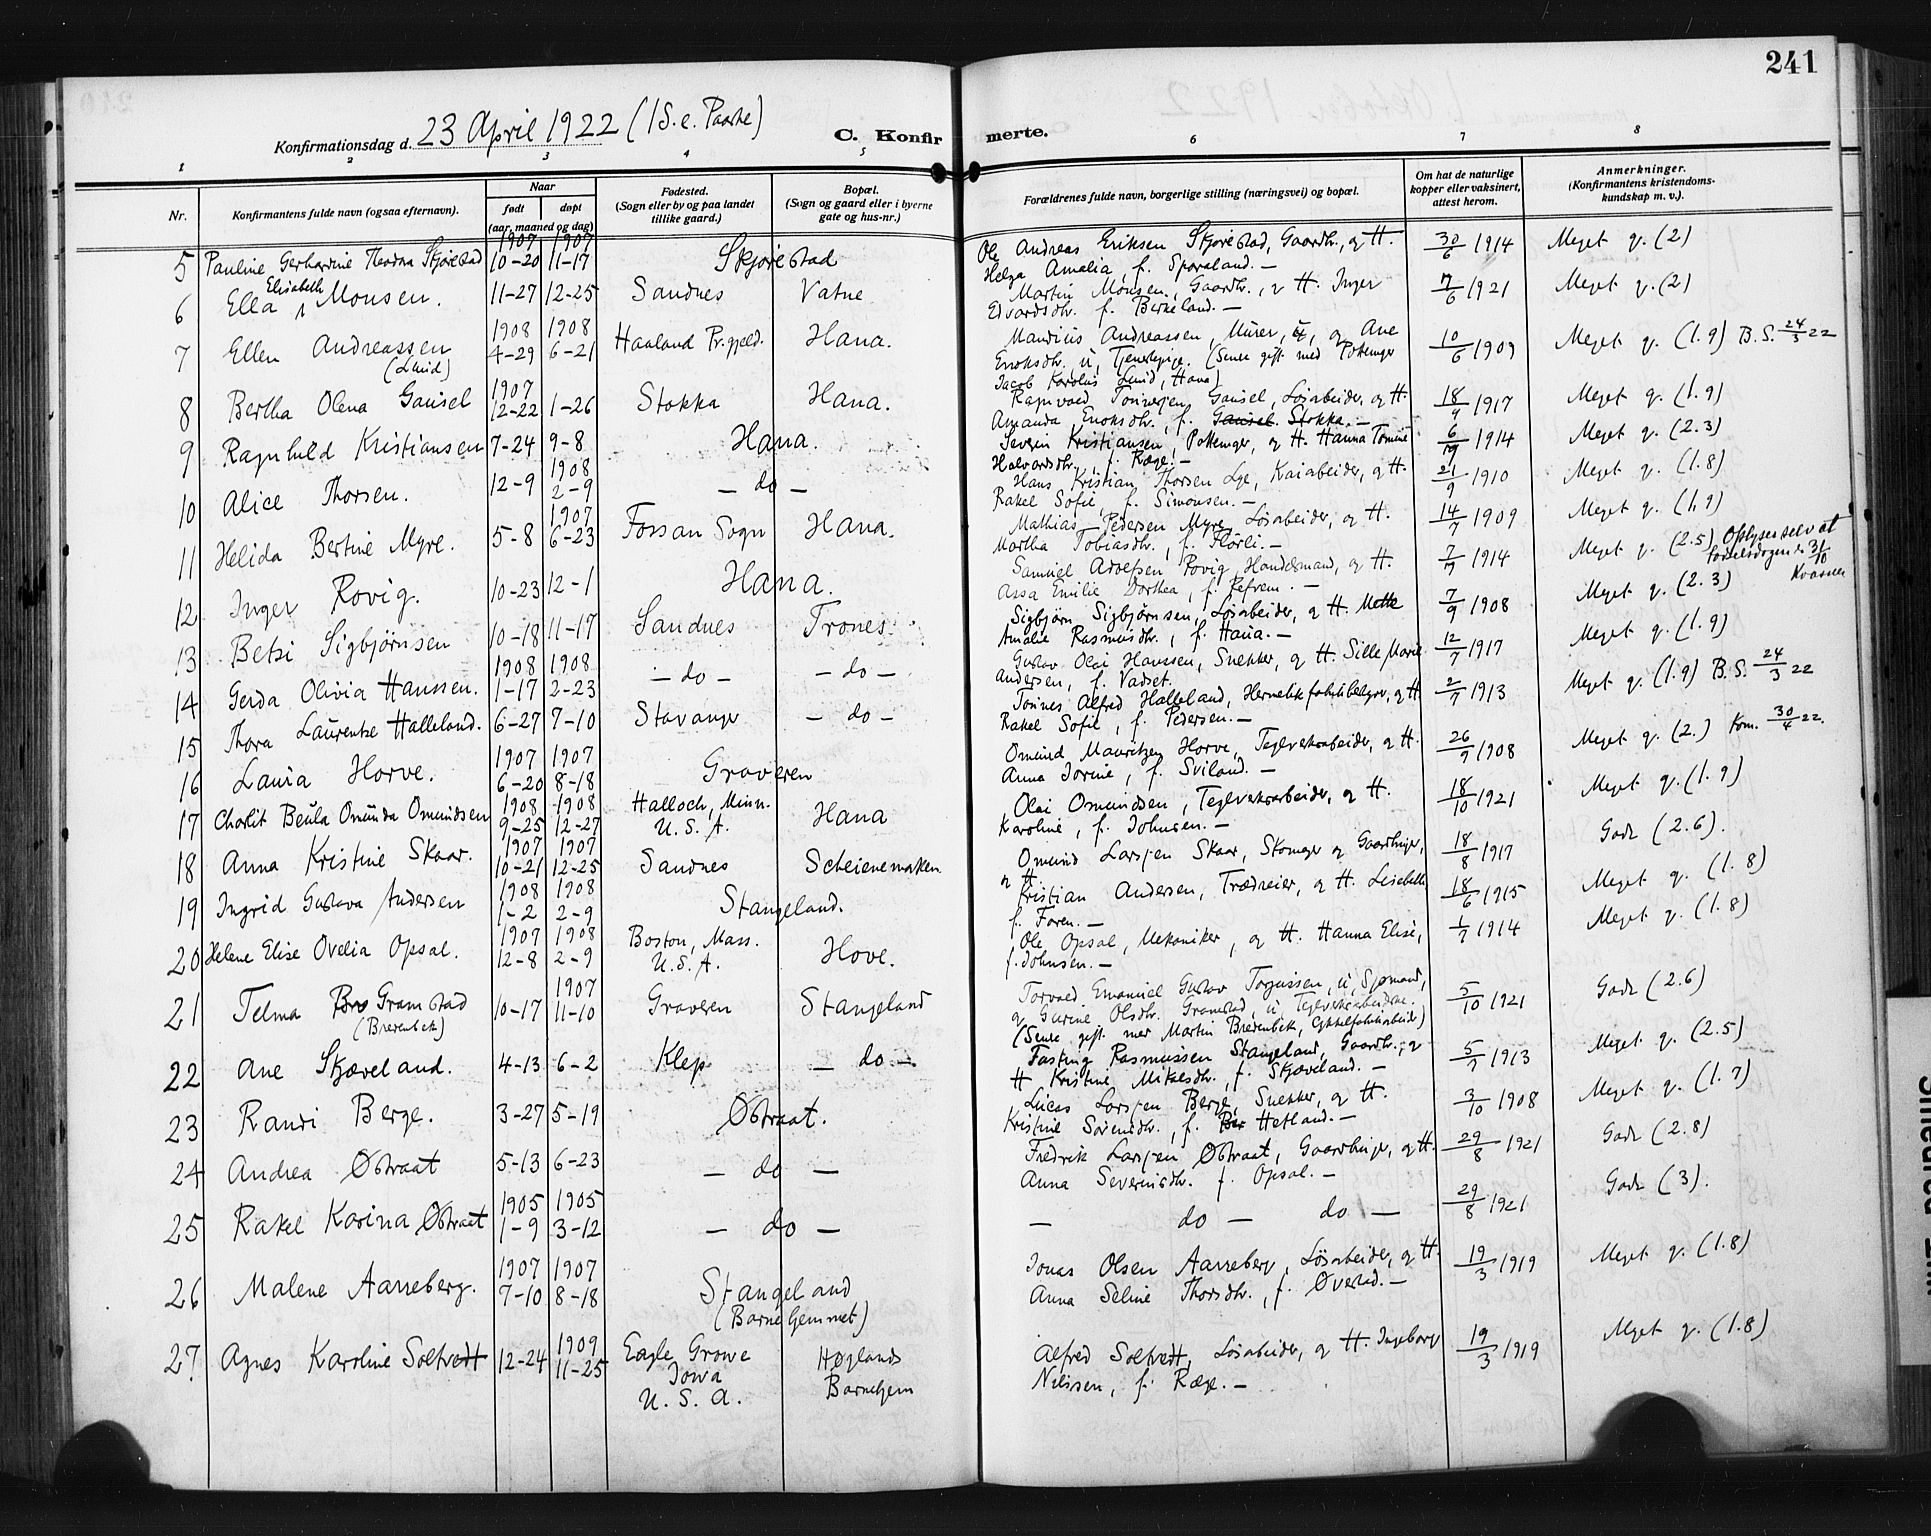 241
Konfirmationsdag d. 23 April 1922 (1 S. e. Paaske)
C. Konfirmerte.
1 2 3 4 5 6 7 8
Nr. Konfirmantens fulde navn (ogsaa efternavn). Naar født døpt (aar, maaned og dag) Fødested. (Sogn eller by og paa landet tillike gaard.) Bopæl. (Sogn og gaard eller i byerne gate og hus-nr.) Forældrenes fulde navn, borgerlige stilling (næringsvei) og bopæl. Om hat de naturlige kopper eller vaksinert, attest herom. Anmerkninger. (Konfirmantens kristendoms-kundskap m. v.).
5 Pauline Gerhardine Theodora Skjørestad 1907 10-20 1907 11-17 Skjørestad Ole Andreas Eriksen Skjørestad, Gaardbr., og H. Helga Amalia, f. Sporaland. — 30/6 1914 Meget g. (2)
6 Ella Elisabeth Monsen. 11-27 12-25 Sandnes Vatne Martin Monsen, Gaardbr., og H. Inger Edvardsdtr. f. Birkeland. — 7/6 1921 Meget g. (2)
7 Ellen Andreassen (Lund) 1908 4-29 1908 6-21 Haaland Pr.gjeld. Hana. Mandius Andreassen, Murer, u, og Ane Enoksdtr. u, Tjenestepige. (Senere gift med Pottemger Jacob Karolius Lund, Hana) 10/6 1909 Meget g. (1.9) B.S. 24/3 22
8 Bertha Olena Gausel 1907 12-22 1-26 Stokka Hana. Ragnvald Tønnesen Gausel, Løsarbeider, og H. Amanda Enoksdtr., f. Gausel Stokka. — 18/9 1917 Meget g. (1.9)
9 Ragnhild Kristiansen 7-24 9-8 Hana. Severin Kristiansen, Pottemger, og H. Hanna Tomine Halvardsdtr., f. Ræge. — 6/19 1914 Meget g. (2.3)
10 Alice Thorsen. 12-9 1908 2-9 — do — Hans Kristian Thorsen Lye, Kaiarbeider, og H. Rakel Sofie, f. Simonsen. — 21/9 1910 Meget g. (1.8)
11 Helida Bertine Myre. 5-8 1907 6-23 Fossan Sogn Hana. Mathias Pedersen Myre, Løsarbeider, og H. Martha Tobiasdtr., f. Flørli. — 14/7 1909 Meget g. (1,9)
12 Inger Rovig. 10-23 12-1 Hana. Samuel Adolfsen Rovig, Handelsmand, og H. Assa Emilie Dorthea, f. Refvem. — 7/7 1914 Meget g. (2.5) Oplyses selv at fødselsdagen er 31/10
13 Betzi Sigbjørnsen 10-18 11-17 Sandnes Trones. Sigbjørn Sigbjørnsen, Løsarbeider, og H. Mette Amalie Rasmusdtr., f. Hana. — 7/9 1908 Meget g. (2.3)
14 Gerda Olivia Hanssen. 1908 1-17 1908 2-23 — do — — do — Gustav Olai Hanssen, Snekker, og H. Sille Marie Andersen, f. Vadset. 12/7 1917 Meget g. (1.9)
15 Thora Laurentze Halleland. 6-27 7-10 Stavanger — do — Tønnes Alfred Halleland, Hermetikfabrikbestyrer, og H. Rakel Sofie, f. Pedersen. — 2/7 1913 Meget g. (1.9) B.S. 24/3 22
16 Laura Horve. 1907 6-20 1907 8-18 Graveren Omund Mauritzen Horve, Teglverksarbeider, og H. Anna Jorine, f. Sviland. — 26/9 1908 Meget g. (2.) Kom. 30/4 22.
17 Charlit Beula Omunda Omundsen 1908 9-25 1908 12-27 Halloch, Minn. U.S.A. Hana Olai Omundsen, Teglverksarbeider, og H. Karoline, f. Johnsen. — 18/10 1921 Meget g. (1.9)
18 Anna Kristine Skaar. 1907 10-21 1907 12-25 Sandnes Scheienemarken Omund Larsen Skaar, Skomger og Gaardbruger, og H. 18/8 1917 Godt (2.6).
19 Ingrid Gustava Andersen 1908 1-2 1908 2-9 Stangeland. Kristian Andersen, Trædreier, og H. Lisebeth f. Foren. — 18/6 1915 Meget g. (1.8)
20 Helene Elise Ovelia Opsal. 1907 12-8 1908 2-9 Boston, Mass. U.S.A. Hove. Ole Opsal, Mekaniker, og H. Hanna Elise, f. Johnsen. — 1/7 1914 Meget g. (1.8)
21 Telma Bre Gramstad (Bredenbek) 10-17 1907 11-10 Graveren Stangeland Torvald Emanuel Gustav Torjussen, u, Sjømand, og Gurine Olsdtr. Gramstad, u, Teglverksarbeiderske. (Senere gift med Martin Bredenbek, Cykkelfabrikarbeider) 5/10 1921 Godt (2.6)
22 Ane Skjæveland. 4-13 6-2 Klep — do — Fasting Rasmussen Stangeland, Gaardbr., og H Kristine Mikalsdtr., f. Skjæveland. — 5/7 1913 Meget g. (2.5)
23 Randi Berge. 3-27 5-19 Østraat. Lucas Larsen Berge, Snekker, og H. Kristine Sørensdtr., f. Ber Hetland. — 3/10 1908 Meget g. (1.7)
24 Andrea Østraat 5-13 6-23 — do — Fredrik Larsen Østraat, Gaardbruger, og H. Anna Severinsdtr. f. Opsal. — 29/8 1921 Godt (2.8)
25 Rakel Karina Østraat 1905 1-9 1905 3-12 — do — — do — do — 29/8 1921 Godt (3).
26 Malene Aarreberg. 1907 7-10 1907 8-18 Stangeland (Barnehjemmet) Jonas Olsen Aarreberg, Løsarbeider, og H. Anna Seline Thorsdtr., f. Øvestad. — 19/3 1919 Meget g. (1.8)
27 Agnes Karoline Soltvedt 12-24 1909 11-25 Eagle Growe Iowa U.S.A. Høglands Barnehjem Alfred Soltvedt, Løsarbeider, og H. Ingeborg Nilssen, f. Ræge. — 19/3 1919 Meget g. (1.8)